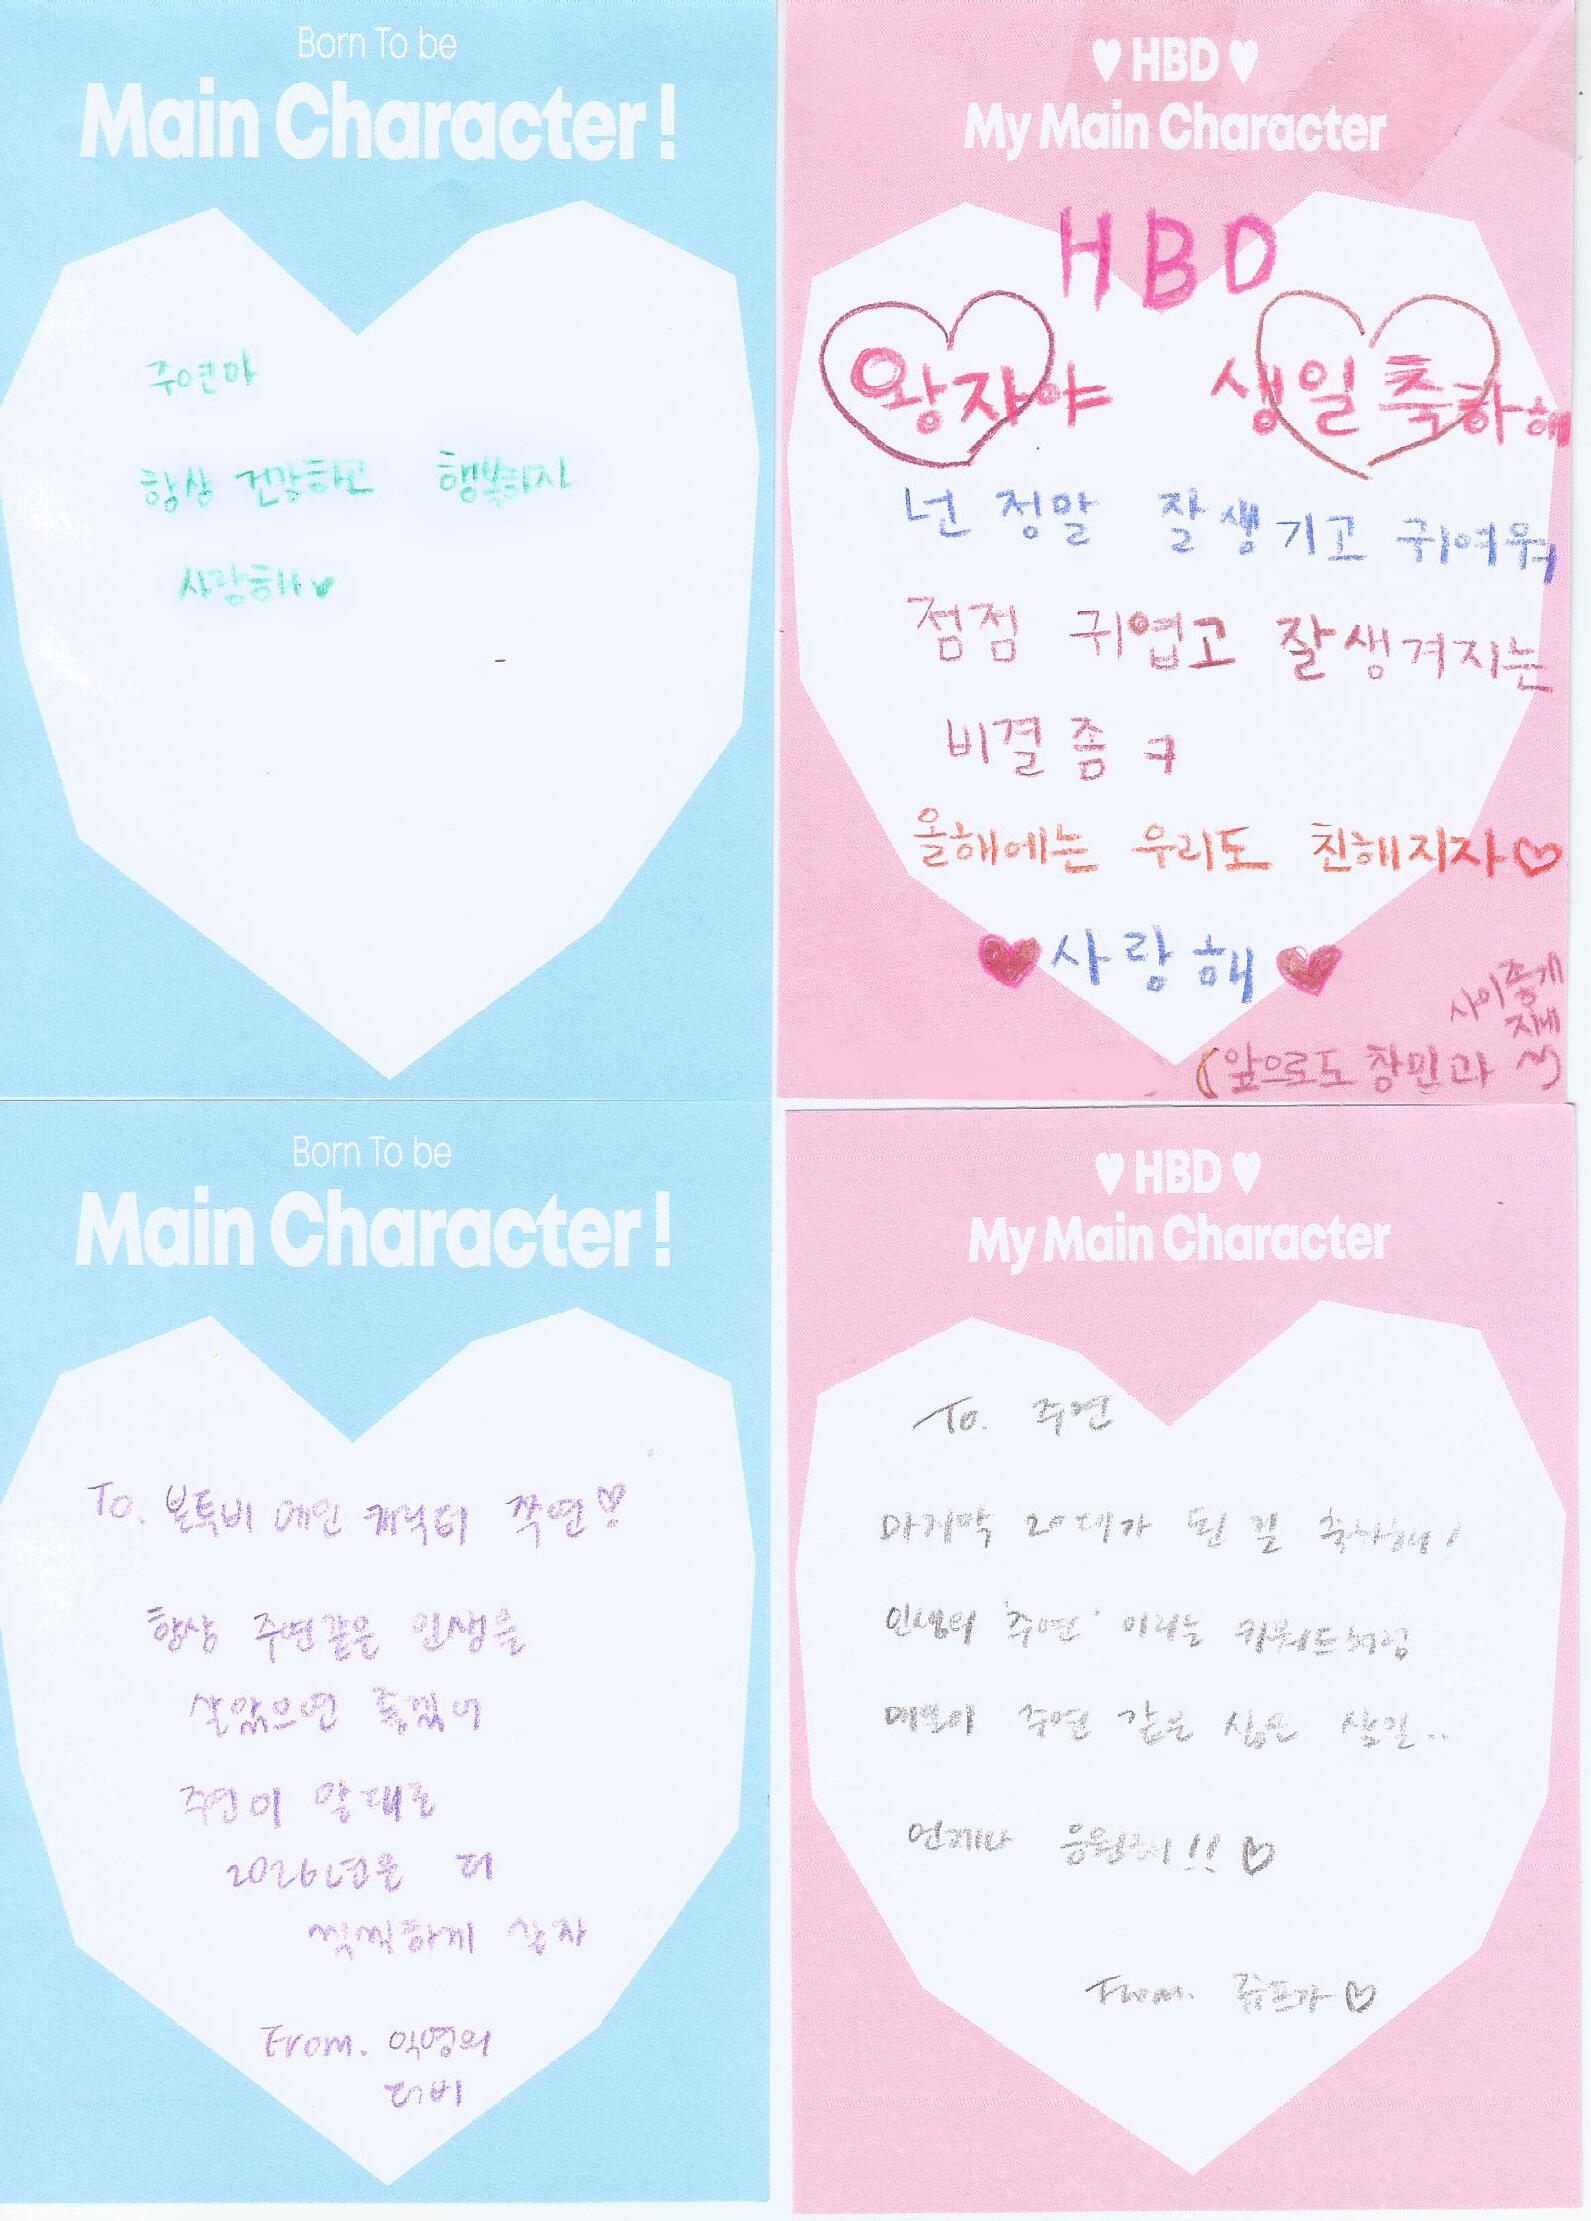 Born To be
Main Character!
주연아
항상 건강하고 행복하자
사랑해♥
♥ HBD ♥
My Main Character
HBD
왕자야 생일축하해
넌 정말 잘생기고 귀여워
점점 귀엽고 잘생겨지는
비결 좀 ㅋ
올해에는 우리도 친해지자♡
♥사랑해♥
(앞으로도 창민과 사이좋게 지내~)
Born To be
Main Character!
To. 본투비 메인 캐릭터 쭉연♡
항상 주연같은 인생을
살았으면 좋겠어
주연이 말대로
2026년을 더
씩씩하게 살자
From. 익명의
더비
♥ HBD ♥
My Main Character
To. 주연
마지막 20대가 된 걸 축하해!
인생의 '주연' 이라는 키워드처럼
매일이 주연 같은 삶을 살길..
언제나 응원해!! ♡
From. 쥬프가♡